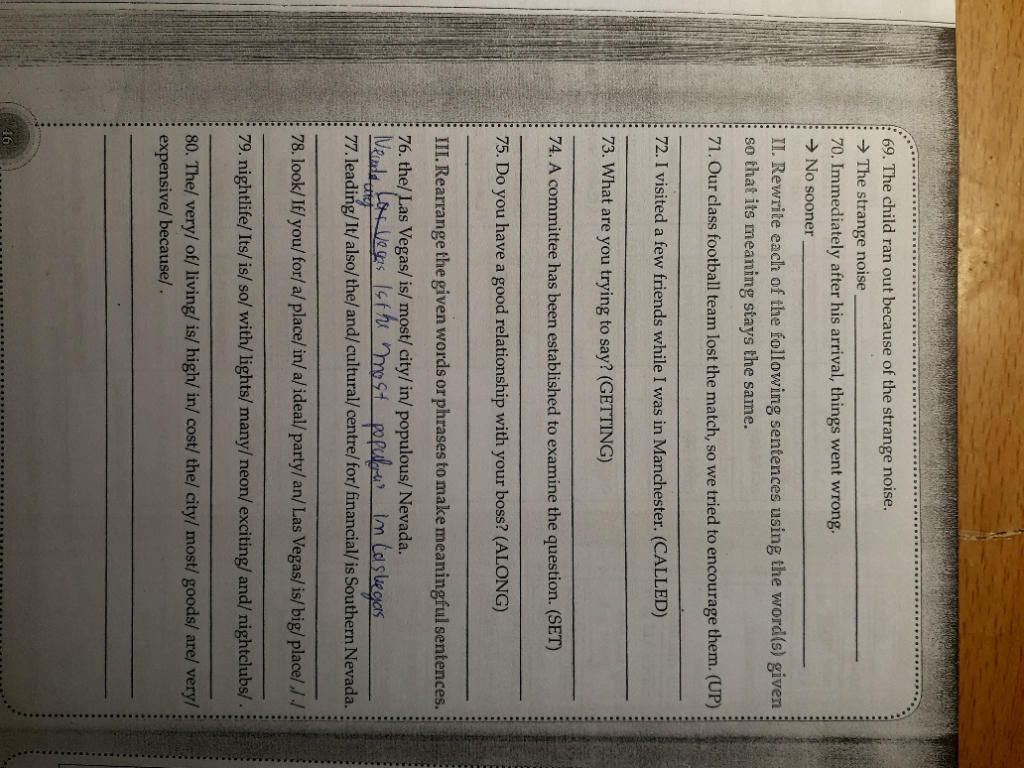 69. The child ran out because of the strange noise.
→ The strange noise
70. Immediately after his arrival, things went wrong.
→ No sooner
II. Rewrite each of the following sentences using the word(s) given
so that its meaning stays the same.
71. Our class football team lost the match, so we tried to encourage them. (UP)
72. I visited a few friends while I was in Manchester. (CALLED)
73. What are you trying to say? (GETTING)
74. A committee has been established to examine the question. (SET)
75. Do you have a good relationship with your boss? (ALONG)
III. Rearrange the given words or phrases to make meaningful sentences.
76. the/ Las Vegas/ is/ most/ city/ in/ populous/ Nevada.
Las Vegas is the most in
77. leading/ It/ also/ the/ and/ cultural/ centre/ for/ financial/ is Southern Nevada.
78. look/ If/ you/ for/ a/ place/ in/ a/ ideal/ party/ an/ Las Vegas/ is/ big/ place/ ,/ ./
79. nightlife/ Its/ is/ so/ with/ lights/ many/ neon/ exciting/ and/ nightclubs/ .
80. The/ very/ of/ living/ is/ high/ in/ cost/ the/ city/ most/ goods/ are/ very/
expensive/ because/ .
46